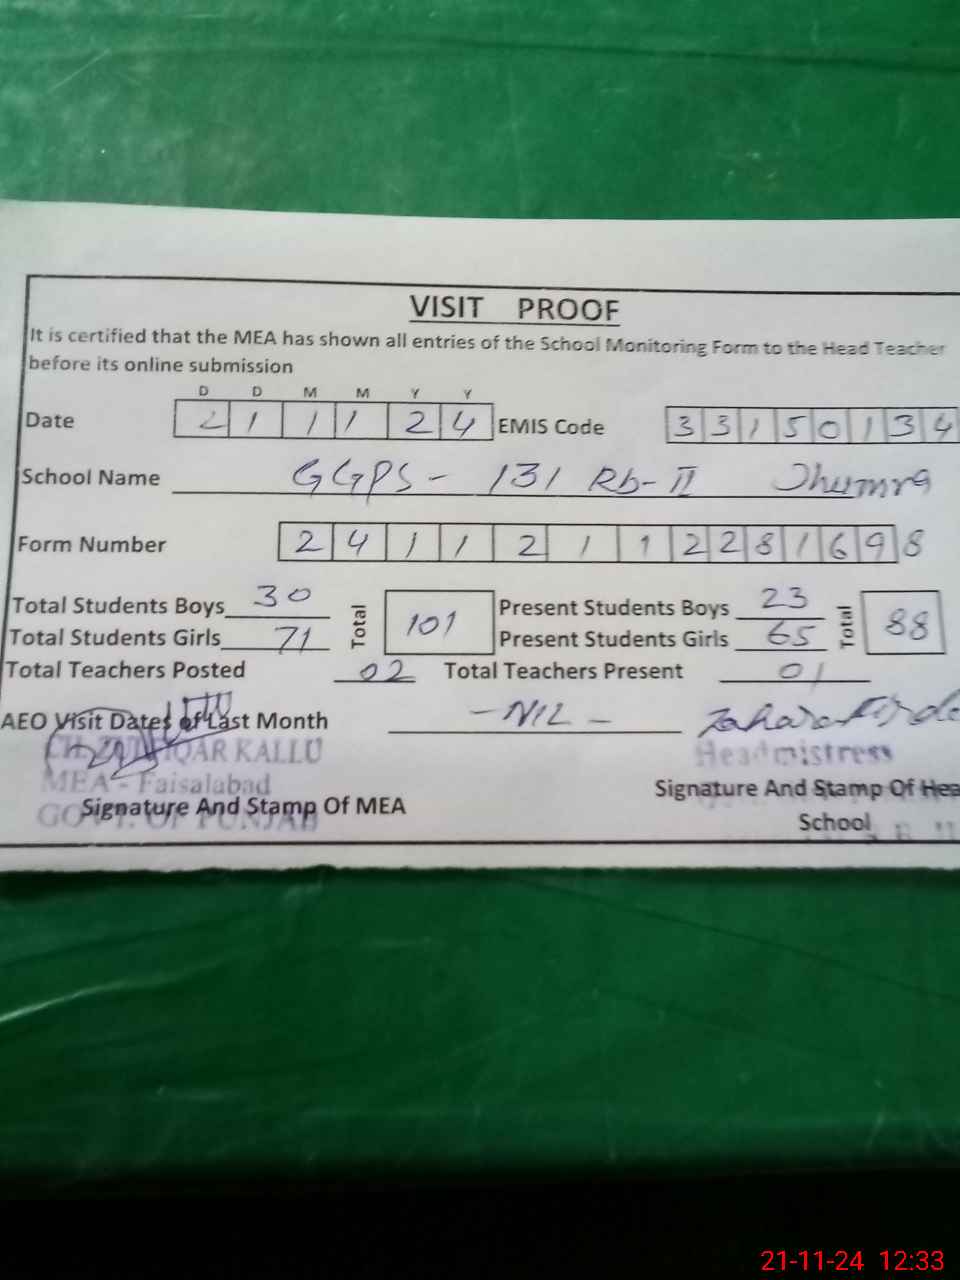 VISIT PROOF
It is certified that the MEA has shown all entries of the School Monitoring Form to the Head Teacher
before its online submission
D D M M Y Y
Date 21 11 24 EMIS Code 33150134
School Name GGPS - 131 Rb-II Jhumra
Form Number 24112112281698
Total Students Boys 30 Total 101 Present Students Boys 23 Total 88
Total Students Girls 71 Present Students Girls 65
Total Teachers Posted 02 Total Teachers Present 01
AEO Visit Dates of Last Month - NIL -
CH. QAR KALLU Headmistress
MEA - Faisalabad
Signature And Stamp Of MEA Signature And Stamp Of Hea
GOVT. OF PUNJAB School
21-11-24 12:33